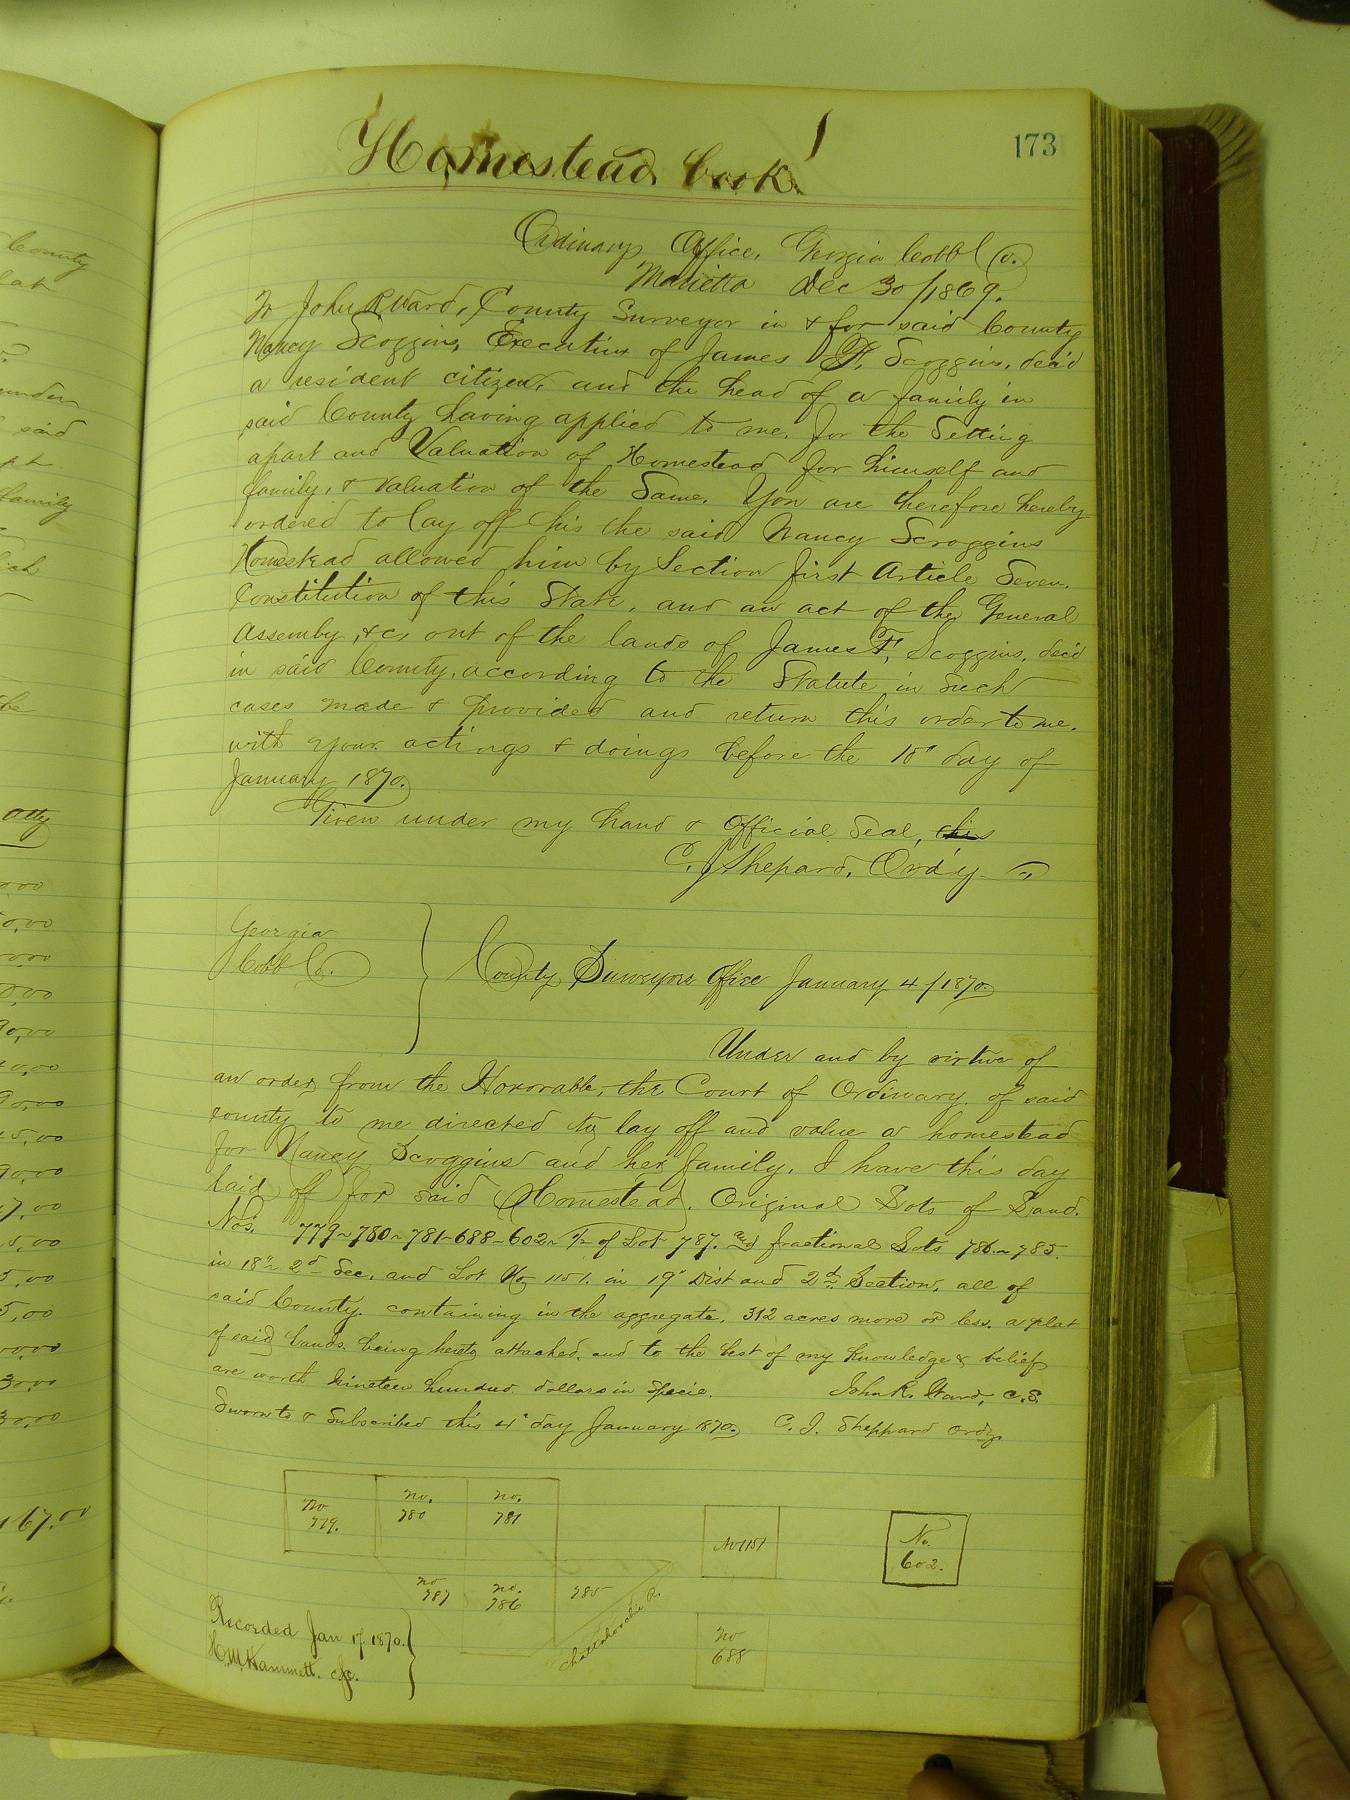 Homestead book.
173
Ordinarys Office, Georgia Cobb Co.
Marietta Dec 30/1869.
To John R Ward, County Surveyor in & for said County
Nancy Scoggins, Executrix of James F. Scoggins, dec'd
a resident citizen, and the head of a family in
said County having applied to me, for the Setting
apart and Valuation of Homestead for himself and
family, & valuation of the Same. You are therefore hereby
ordered to lay off his the said Nancy Scroggins
Homestead allowed him by Section first Article Seven,
Constitution of this State, and an act of the General
Assemby, &c, out of the lands of James F, Scoggins, dec'd
in said County, according to the Statute in such
cases made & provided and return this order to me.
with your actings & doings before the 10" day of
January 1870.
Given under my hand & Official Seal, this
C. J Shepard, Ord'y
Georgia
Cobb Co.
County Surveyors Office January 4/1870.
Under and by virtue of
an order from the Honorable, the Court of Ordinary of said
county to me directed to lay off and value a homestead
for Nancy Scoggins and her family, I have this day
laid off for said (Homestead). Original Lots of Land.
Nos. 779-780-781-688-602- of Lot 787. and fractional Lots 786-785.
in 18" 2d Sec, and Lot No 1151. in 19" Dist and 2d Section, all of
said County. containing in the aggregate, 312 acres more or less. a plat
of said lands being hereto attached, and to the best of my knowledge & belief
are worth Nineteen hundred dollars in Specie. John R. Ward, C.S.
Sworn to & Subscribed this 4" day January 1870. C. J. Sheppard Ordy.
No 779.
no. 780
no. 781
no 787
no. 786
785
Chattahoochie R.
No 1151
No. 602.
no 688
Recorded Jan 17 1870.
H. M. Hammett. cfc.
County
under
said
family
Atty
167.00